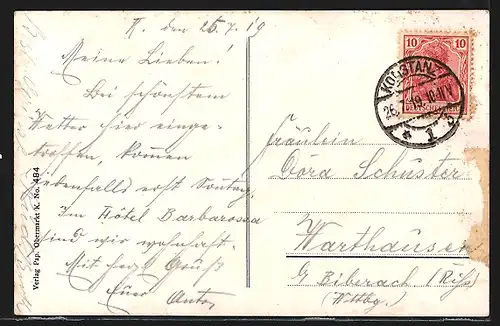 K. den 26.7.19
Meine Lieben!
Bei schönstem
Wetter hier einge-
troffen, kommen
ebenfalls erst Sonntag.
Im Hôtel Barbarossa
sind wir wohnhaft.
Mit herzl. Gruß
Euer Anton
Verlag Pap. Obermarkt K. No. 484
10 10
DEUTSCHES
KONSTANZ
26.7.19. 10-11V.
* 1
Fräulein
Dora Schuster
Warthausen
b/ Biberach (Riß)
(Wttbg.)